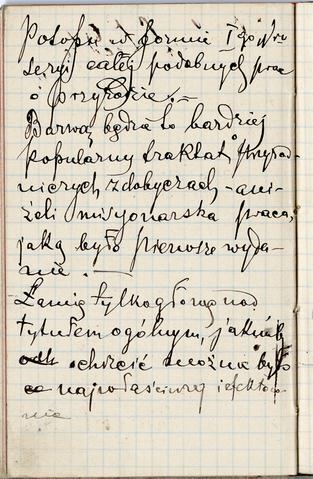 Potopu w formie I zeszytu
seryi całej podobnych prac
o przyrodzie. —
Barwą, będzie to bardziej
popularny traktat o przyrod-
niczych zdobyczach - ani-
żeli misyonarska praca,
jaką było pierwsze wyda-
nie. —
Łamię tylko głowę nad
tytułem ogólnym, jakiń
ochrzcić można było
najwłaściwiej i efektow
nie